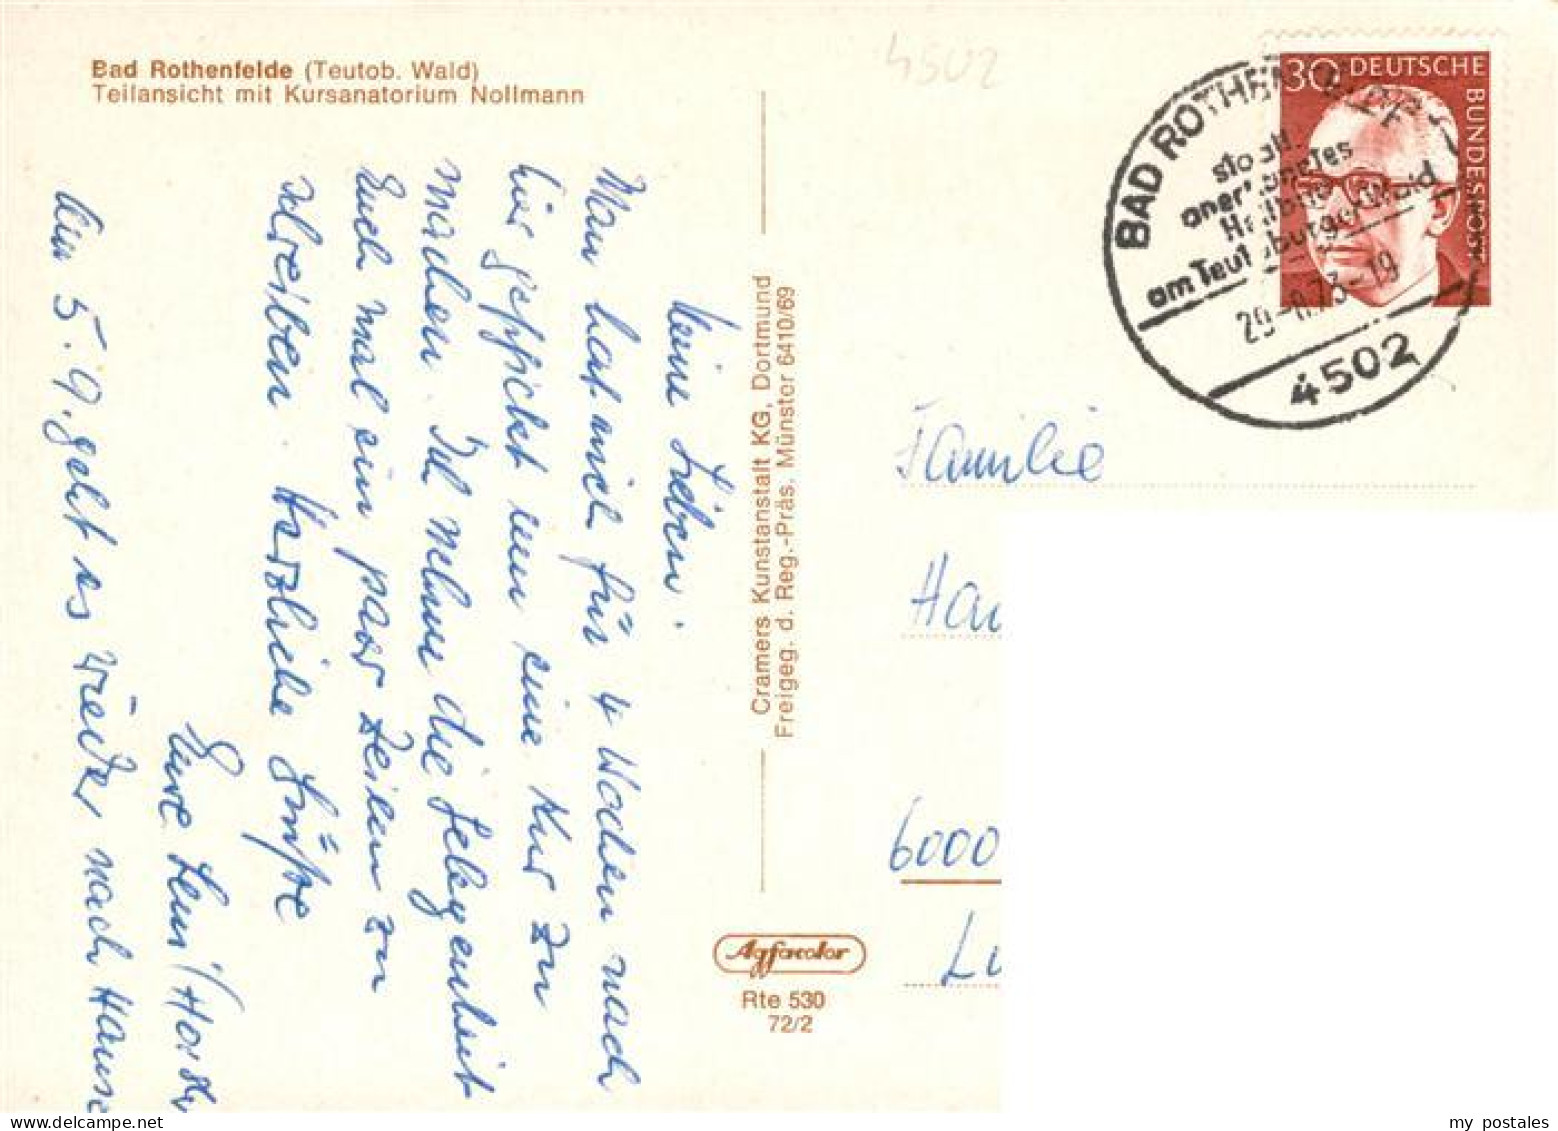 Bad Rothenfelde (Teutob. Wald)
Teilansicht mit Kursanatorium Nollmann
4502
30 DEUTSCHE
BUNDESPOST
BAD ROTHENFELDE
staatl.
anerkanntes
Heilbad
am Teutoburger Wald
73-19
4502
Meine Lieben.
Man hat mich für 4 Wochen nach
hier geschickt um eine Kur zu
machen. Ich nehme die Gelegenheit
Euch mal ein paar Zeilen zu
schreiben. Herzliche Grüße
Eure Leni / Horst
Am 5.9. geht es wieder nach Hause
Cramers Kunstanstalt KG, Dortmund
Freigeg. d. Reg.-Präs. Münster 6410/69
Agfacolor
Rte 530
72/2
Familie
Ha
6000
L
my postales